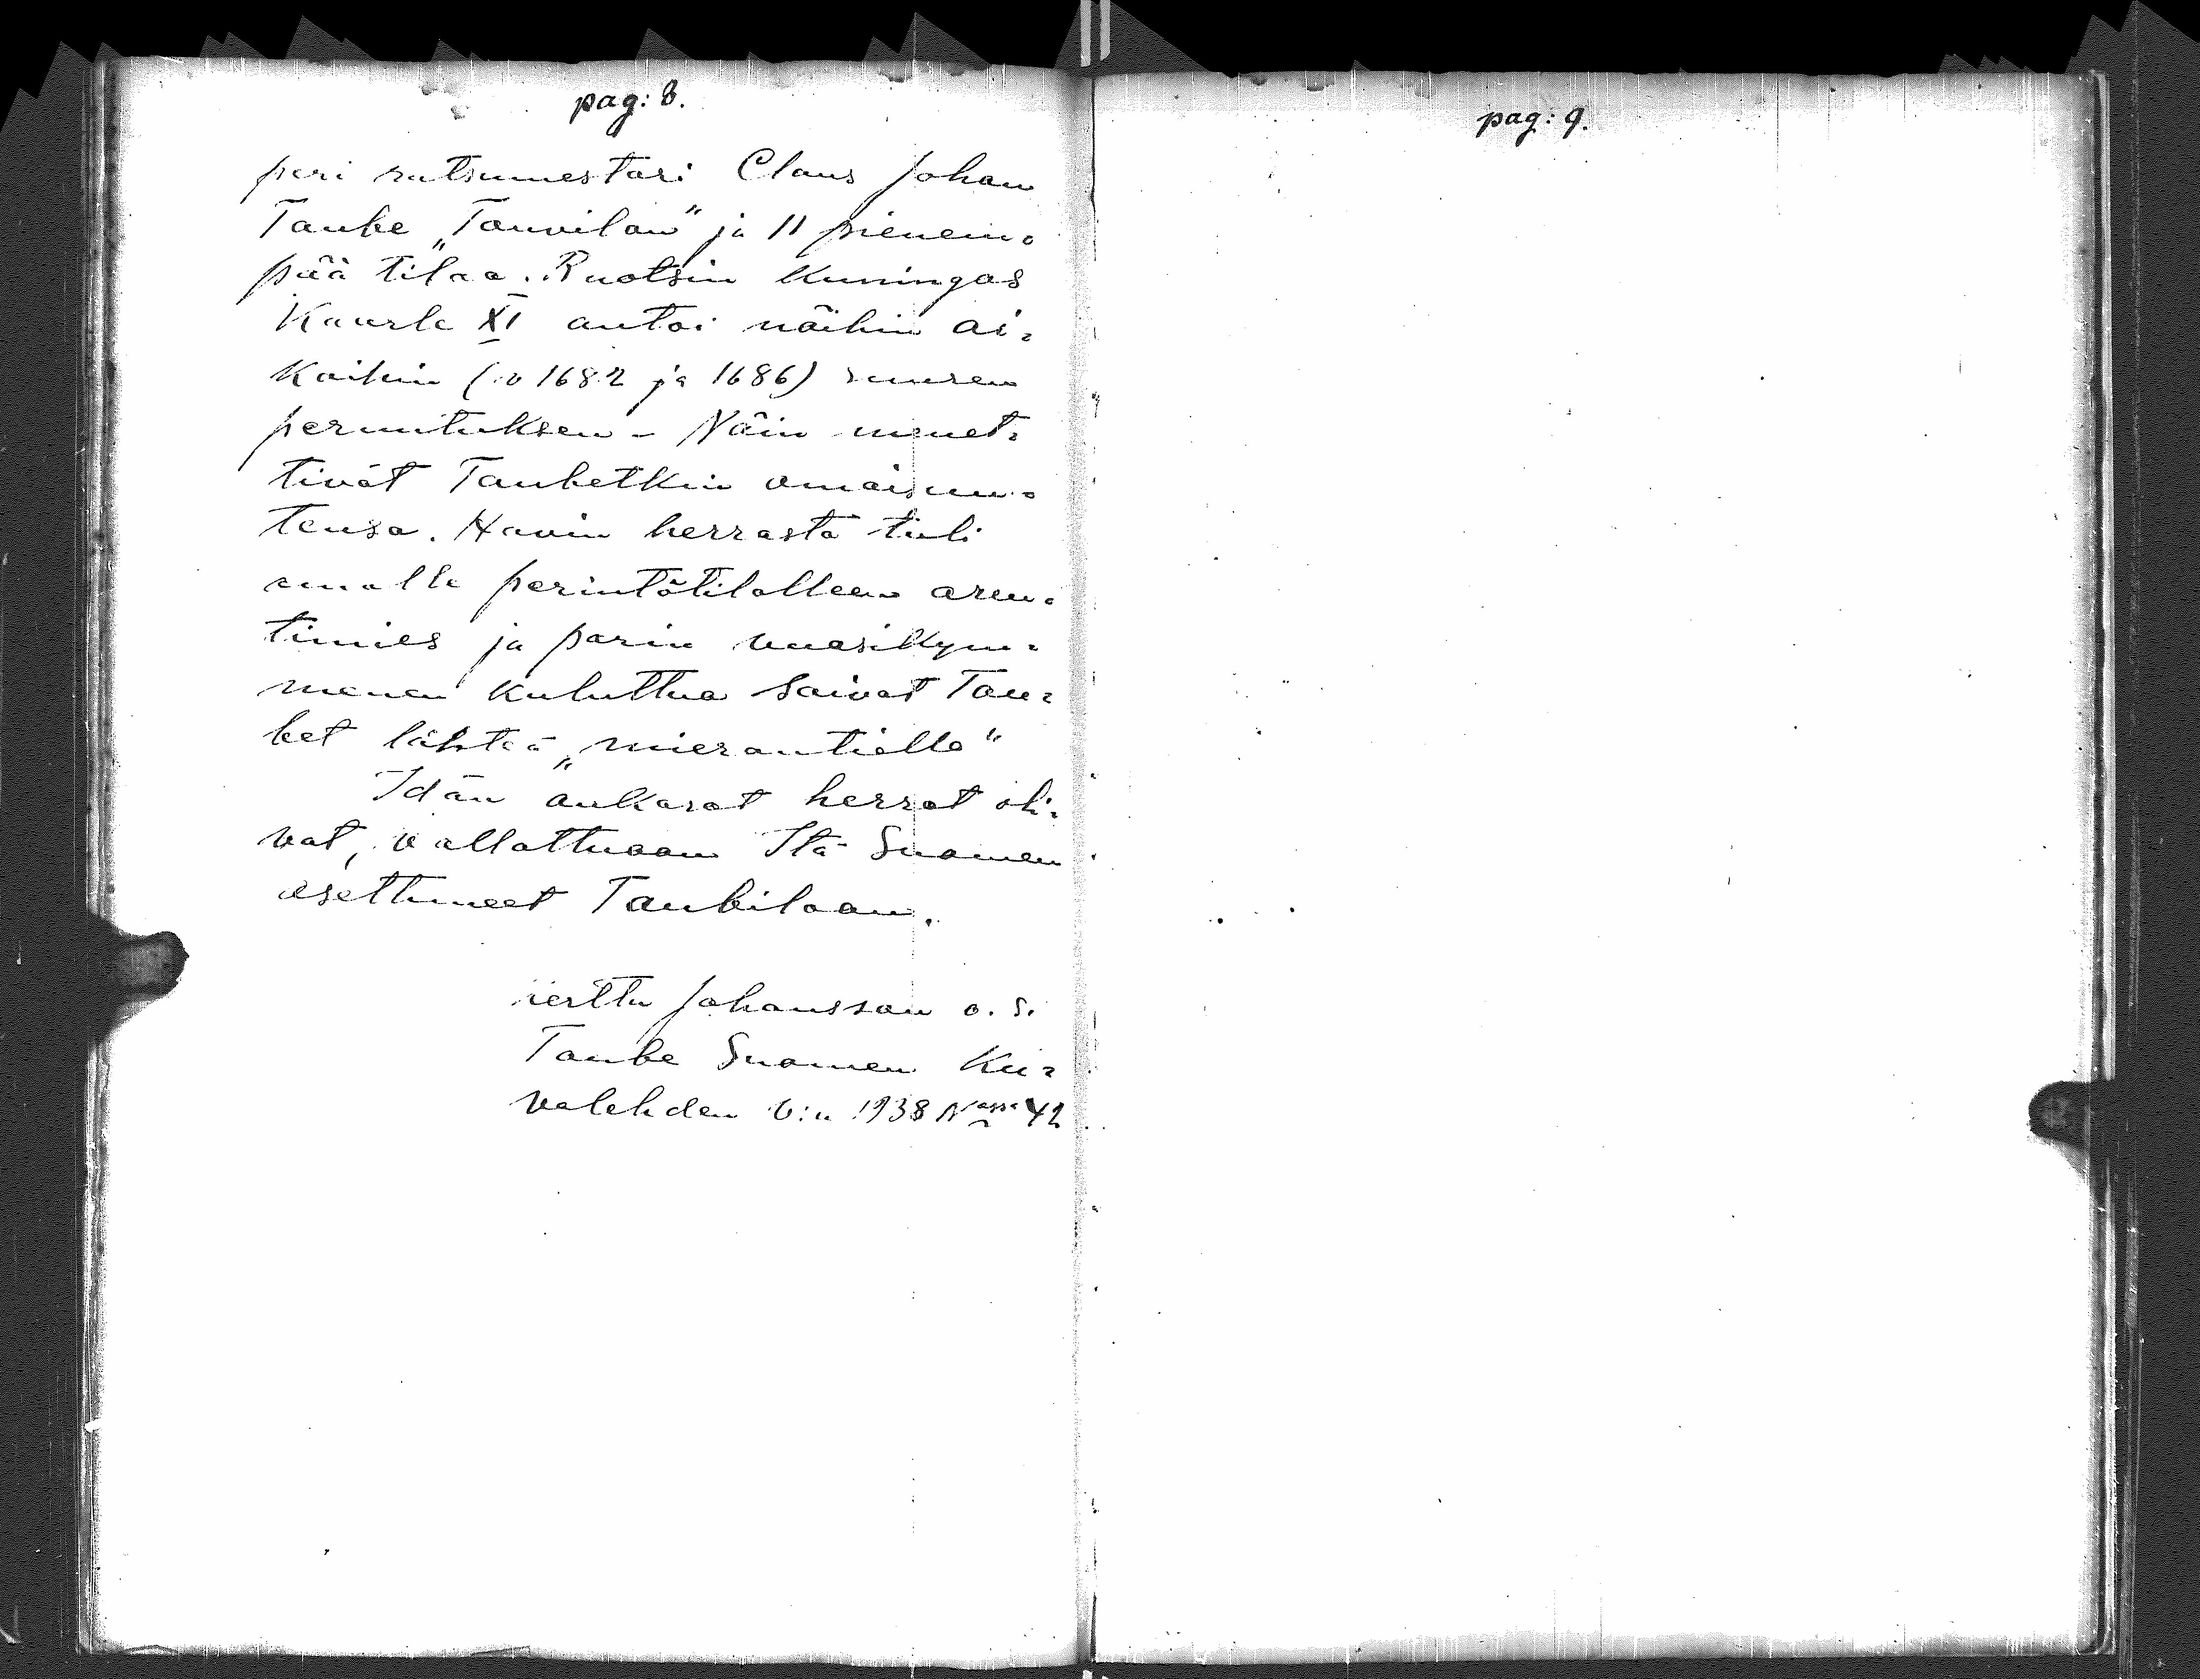 pag: 8.
peri ratsumestari Claus Johan
Taube „Tauvilan" ja 11 pienem=
pää tilaa. Ruotsin kuningas
Kaarle XI antoi näihin ai=
koihin (v 1682 ja 1686) suuren
peruutuksen - Näin menet=
tivät Taubetkin omaisuu=
tensa. Hovin herrasta tuli
omalle perintötilalleen aren=
timies ja parin vuosikym=
menen kuluttua saivat Tau=
bet lähteä „mierontielle"
Idän ankarat herrat oli=
vat, vallattuaan Itä Suomen
asettuneet Taubilaan.
Kerttu Johansson o. s.
Taube Suomen Ku=
valehden v:n 1938 N:ssa 42
pag: 9.